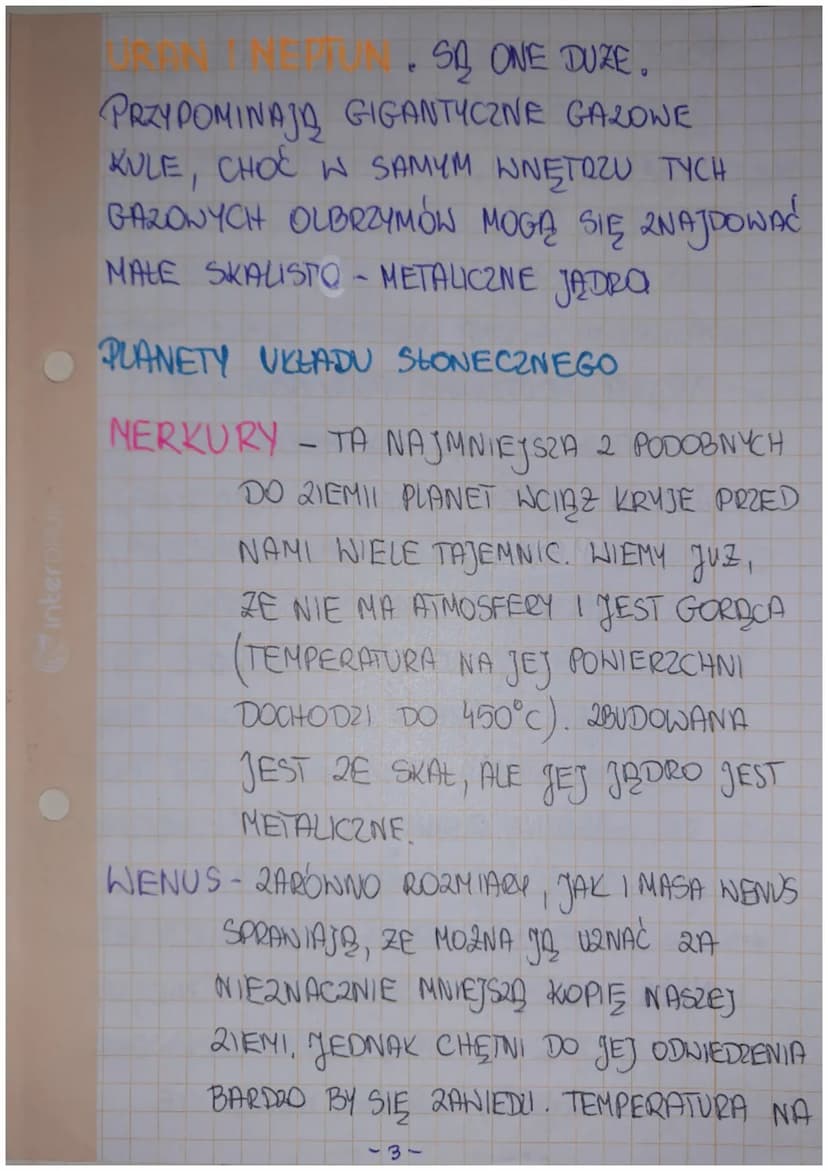 URAN I NEPTUN. SĄ ONE DUŻE.
PRZYPOMINAJĄ GIGANTYCZNE GAZOWE
KULE, CHOĆ W SAMYM WNĘTRZU TYCH
GAZOWYCH OLBRZYMÓW MOGĄ SIĘ ZNAJDOWAĆ
MAŁE SKALISTO - METALICZNE JĄDRA
PLANETY UKŁADU SŁONECZNEGO
MERKURY - TA NAJMNIEJSZA Z PODOBNYCH
DO ZIEMII PLANET WCIĄŻ KRYJE PRZED
NAMI WIELE TAJEMNIC. WIEMY JUŻ,
ŻE NIE MA ATMOSFERY I JEST GORĄCA
(TEMPERATURA NA JEJ POWIERZCHNI
DOCHODZI DO 450°C). ZBUDOWANA
JEST ZE SKAŁ, ALE JEJ JĄDRO JEST
METALICZNE.
WENUS - ZARÓWNO ROZMIARY, JAK I MASA WENUS
SPRAWIAJĄ, ŻE MOŻNA JĄ UZNAĆ ZA
NIEZNACZNIE MNIEJSZĄ KOPIĘ NASZEJ
ZIEMI, JEDNAK CHĘTNI DO JEJ ODWIEDZENIA
BARDZO BY SIĘ ZAWIEDLI. TEMPERATURA NA
- 3 -